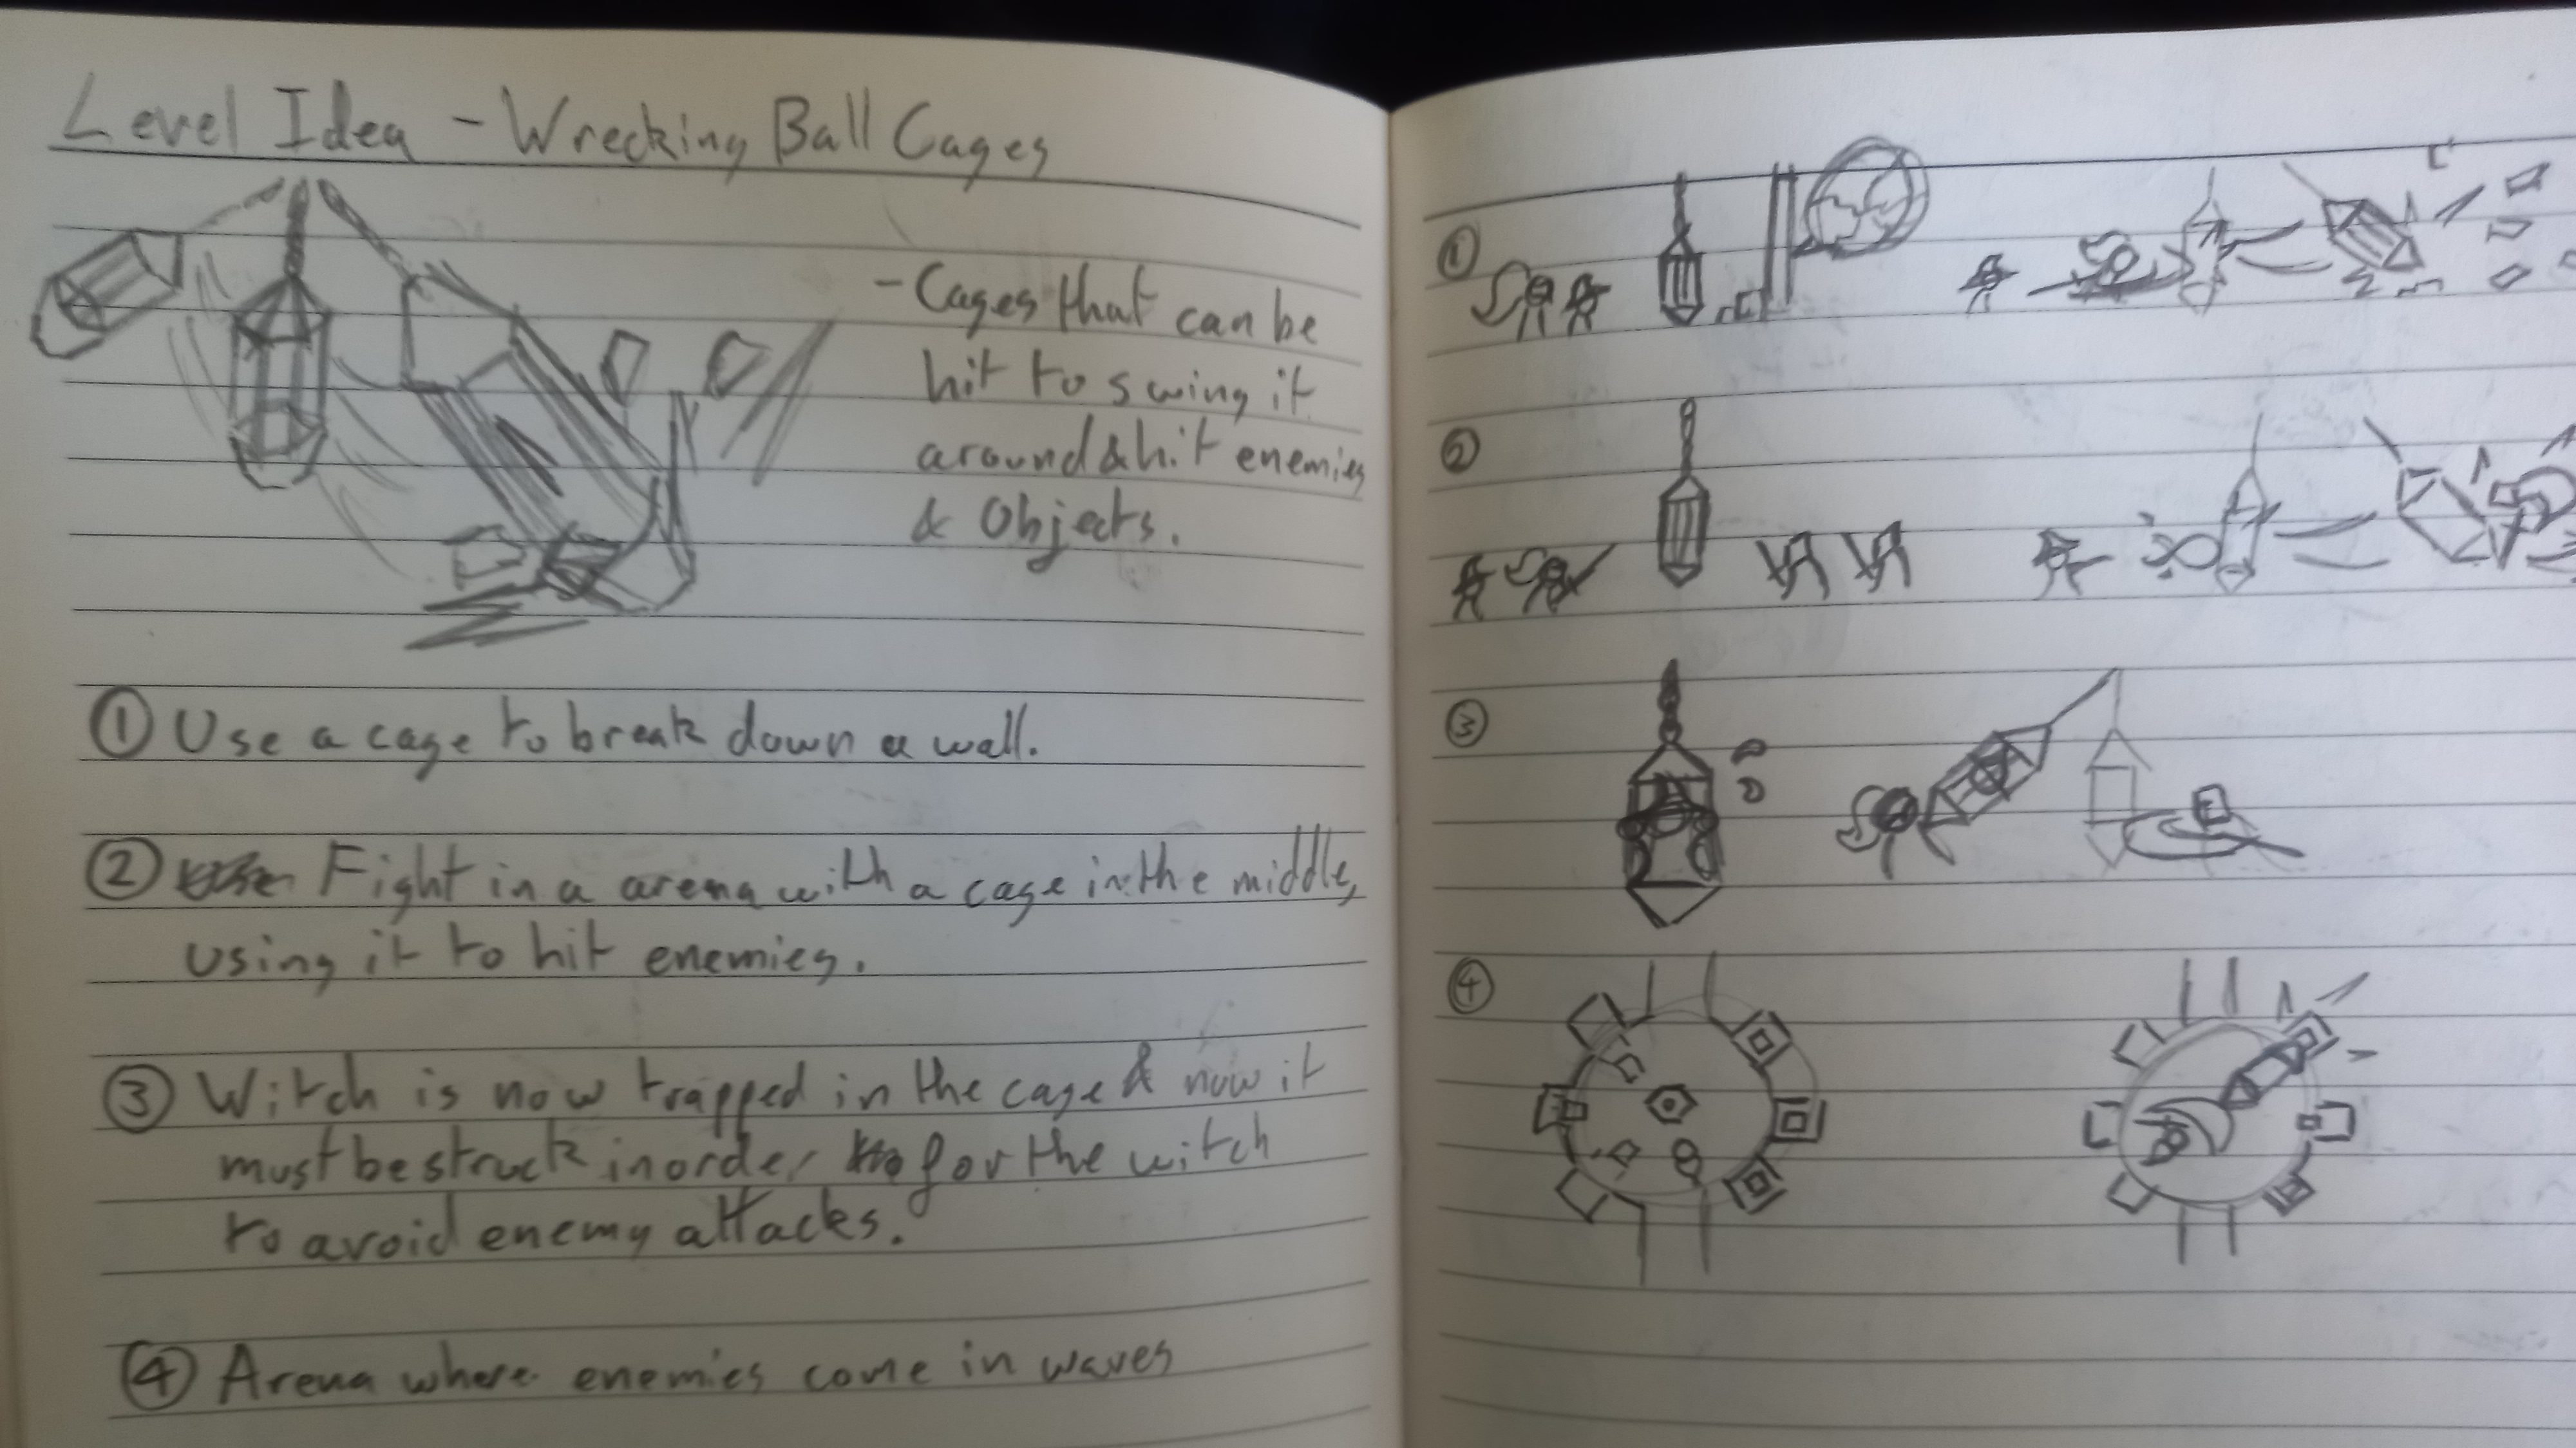 Level Idea - Wrecking Ball Cages
- Cages that can be
hit to swing it
around & hit enemies
& Objects.
① Use a cage to break down a wall.
② Fight in a arena with a cage in the middle,
using it to hit enemies.
③ Witch is now trapped in the cage & now it
must be struck in order for the witch
to avoid enemy attacks.
④ Arena where enemies come in waves
①
②
③
④